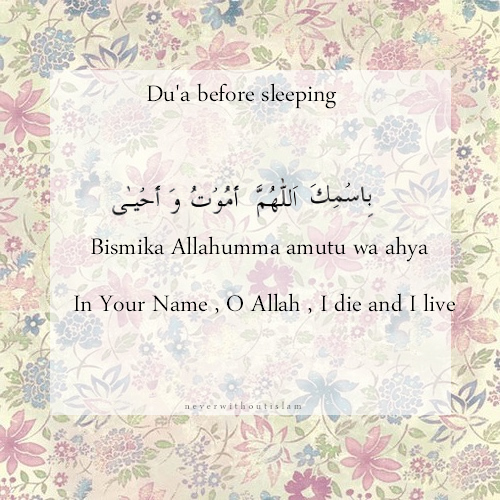 Du'a before sleeping
بِاسْمِكَ اَللّٰهُمَّ أَمُوْتُ وَ أَحْيٰى
Bismika Allahumma amutu wa ahya
In Your Name , O Allah , I die and I live
neverwithoutislam